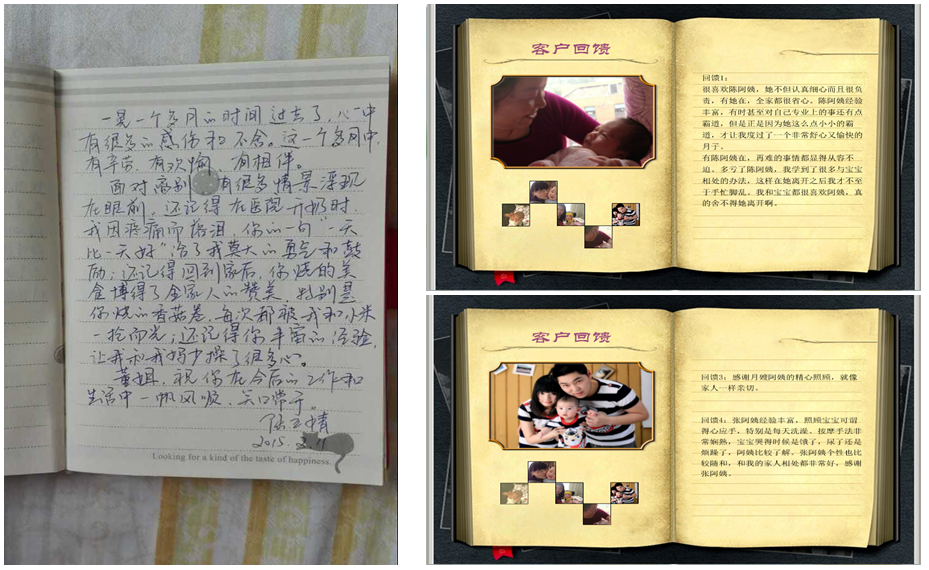 一晃一个多月的时间过去了，心中
有很多的感伤和不舍。这一个多月中，
有辛苦，有欢愉，有相伴。
面对离别，有很多情景浮现
在眼前，还记得在医院开奶时，
我因疼痛而落泪，你的一句"一天
比一天好"给了我莫大的勇气和鼓
励；还记得回到家后，你烧的美
食博得了全家人的赞美，特别是
你烧的香菇卷，每次都被我和小米
一抢而光；还记得你丰富的经验，
让我和我妈少操了很多心。
董姐，祝你在今后的工作和
生活中一帆风顺，笑口常开。
2015.
Looking for a kind of the taste of happiness.
客户回馈
回馈1：
很喜欢陈阿姨，她不但认真细心而且很负
责，有她在，全家都很省心。陈阿姨经验
丰富，有时甚至对自己专业上的事还有点
霸道，但是正是因为她这么点小小的霸
道，才让我度过了一个非常舒心又愉快的
月子。
有陈阿姨在，再难的事情都显得从容不
迫。多亏了陈阿姨，我学到了很多与宝宝
相处的办法，这样在她离开之后我才不至
于手忙脚乱。我和宝宝都很喜欢阿姨，真
的舍不得她离开啊。
客户回馈
回馈3：感谢月嫂阿姨的精心照顾，就像
家人一样亲切。
回馈4：张阿姨经验丰富，照顾宝宝可谓
得心应手，特别是每天洗澡。按摩手法非
常娴熟，宝宝哭得时候是饿了，尿了还是
烦躁了，阿姨比较了解。张阿姨个性也比
较随和，和我的家人相处都非常好，感谢
张阿姨。